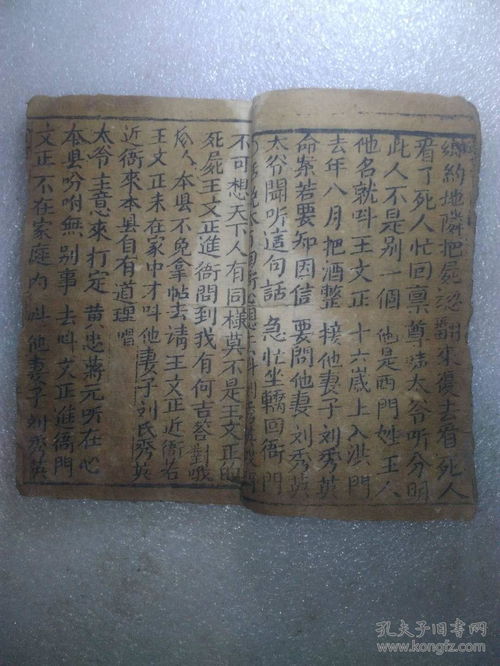 鄉約地隣把屍
翻來復去看死人
看了死人忙回禀 尊味太爷听分明
此人不是别一個 他是西門姓王人
他名就叫王文正 十六歲上入洪門
去年八月把酒整 接他妻子刘秀英
命案若要知因信 要問他妻刘秀英
太爷聞听這句話 急忙坐轎回衙門
不可想天下人有同樣莫不是王文正的
死屍王文正進衙問到我有何言答對哦
本县不免拿帖去請王文正近衙若
王文正未在家中才叫他妻子刘氏秀英
近衙來本县自有道理唱
太爷主意來打定 黄忠蔣元听在心
本县吩咐無别事 去叫文正進衙門
文正不在家庭内 叫他妻子刘秀英
孔夫子旧书网
www.kongfz.com